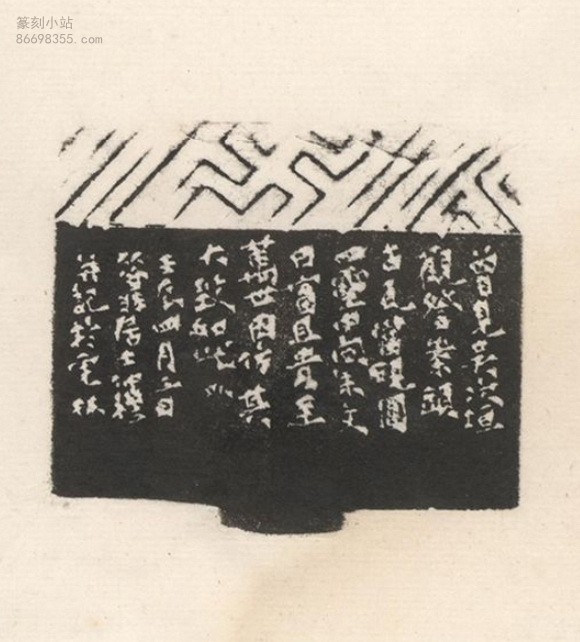 篆刻小站
86698355.com
曾見吳次垣
觀參綦頭
古瓦當硯圖
四靈中間朱文
曰富且貴至
萬世因仿其
大致如此
壬辰四月二日
居士
并記於